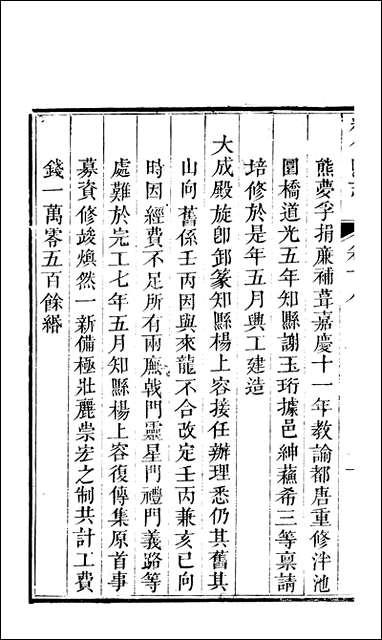 熊夢孚捐廉補葺嘉慶十一年教諭都唐重修泮池
圜橋道光五年知縣謝玉珩據邑紳蘓希三等禀請
培修於是年五月興工建造
大成殿旋卸篆知縣楊上容接任辦理悉仍其舊其
山向舊係壬丙因與來龍不合改定壬丙兼亥已向
時因經費不足所有兩廡戟門靈星門禮門義路等
處難於完工七年五月知縣楊上容復傳集原首事
募資修竣煥然一新備極壯麗崇宏之制共計工費
錢一萬零五百餘緡